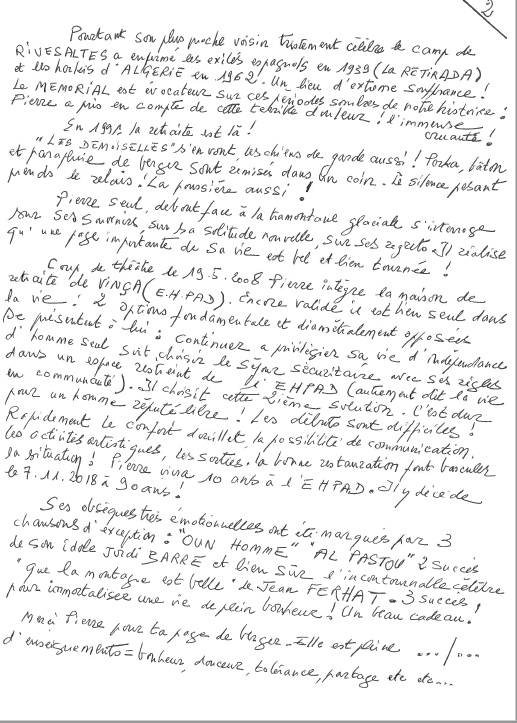 2
Pourtant son plus proche voisin tristement célèbre le camp de
RIVESALTES a enfermé les exilés espagnols en 1939 (LA RETIRADA)
et les harkis d'ALGERIE en 1962. Un lieu d'extrême souffrance !
Le MEMORIAL est évocateur sur ces périodes sombres de notre histoire :
Pierre a pris en compte de cette terrible douleur ! l'immense
cruauté !
En 1991 la retraite est là !
"LES DEMOISELLES" s'en vont, les chiens de garde aussi ! Porha, bâton
et parapluie de berger sont remisés dans un coin. Le silence pesant
prends le relais ! La poussière aussi !
Pierre seul, debout face à la tramontane glaciale s'interroge
sur ses souvenirs, sur sa solitude nouvelle, sur ses regrets. Il réalise
qu'une page importante de sa vie est bel et bien tournée !
Coup de théâtre le 19.5.2008 Pierre intègre la maison de
retraite de VINÇA (E.H.PAD). Encore valide il est bien seul dans
la vie ! 2 options fondamentale et diamétralement opposées
se présentent à lui : Continuer à privilégier sa vie d'indépendance
d'homme seul soit choisir le séjour sécuritaire avec ses règles
dans un espace restreint de l'EHPAD (autrement dit la vie
en communauté). Il choisit cette 2ième solution. C'est dur
pour un homme réputé libre ! Les débuts sont difficiles !
Rapidement le confort douillet, la possibilité de communication,
les activités artistiques, les sorties, la bonne restauration font basculer
la situation ! Pierre vivra 10 ans à l'EHPAD. Il y décède
le 7.11.2018 à 90 ans !
Ses obsèques très émotionnelles ont été marqués par 3
chansons d'exception : "OUN HOMME" "AL PASTOU" 2 succès
de son idole Jordi BARRE et bien sûr l'incontournable célèbre
"que la montagne est belle" de Jean FERHAT. 3 succès !
pour immortalisée une vie de plein bonheur ! Un beau cadeau.
Merci Pierre pour ta page de berger. Elle est pleine .../...
d'enseignements = bonheur, douceur, tolérance, partage etc etc...